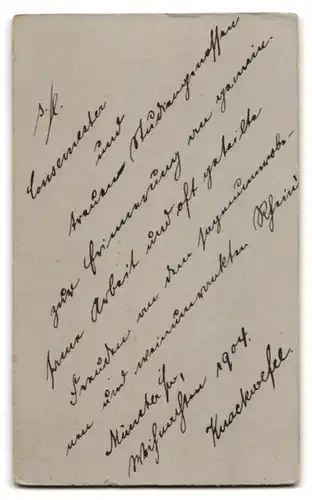 s. l.
Consemester
und
treuen Studiengenossen
zur Erinnerung an gemein-
same Arbeit und oft geteilte
Freuden an dem sagenumwobe-
nen und weinumrankten Rhein
Münster i/w,
Weihnachten 1904.